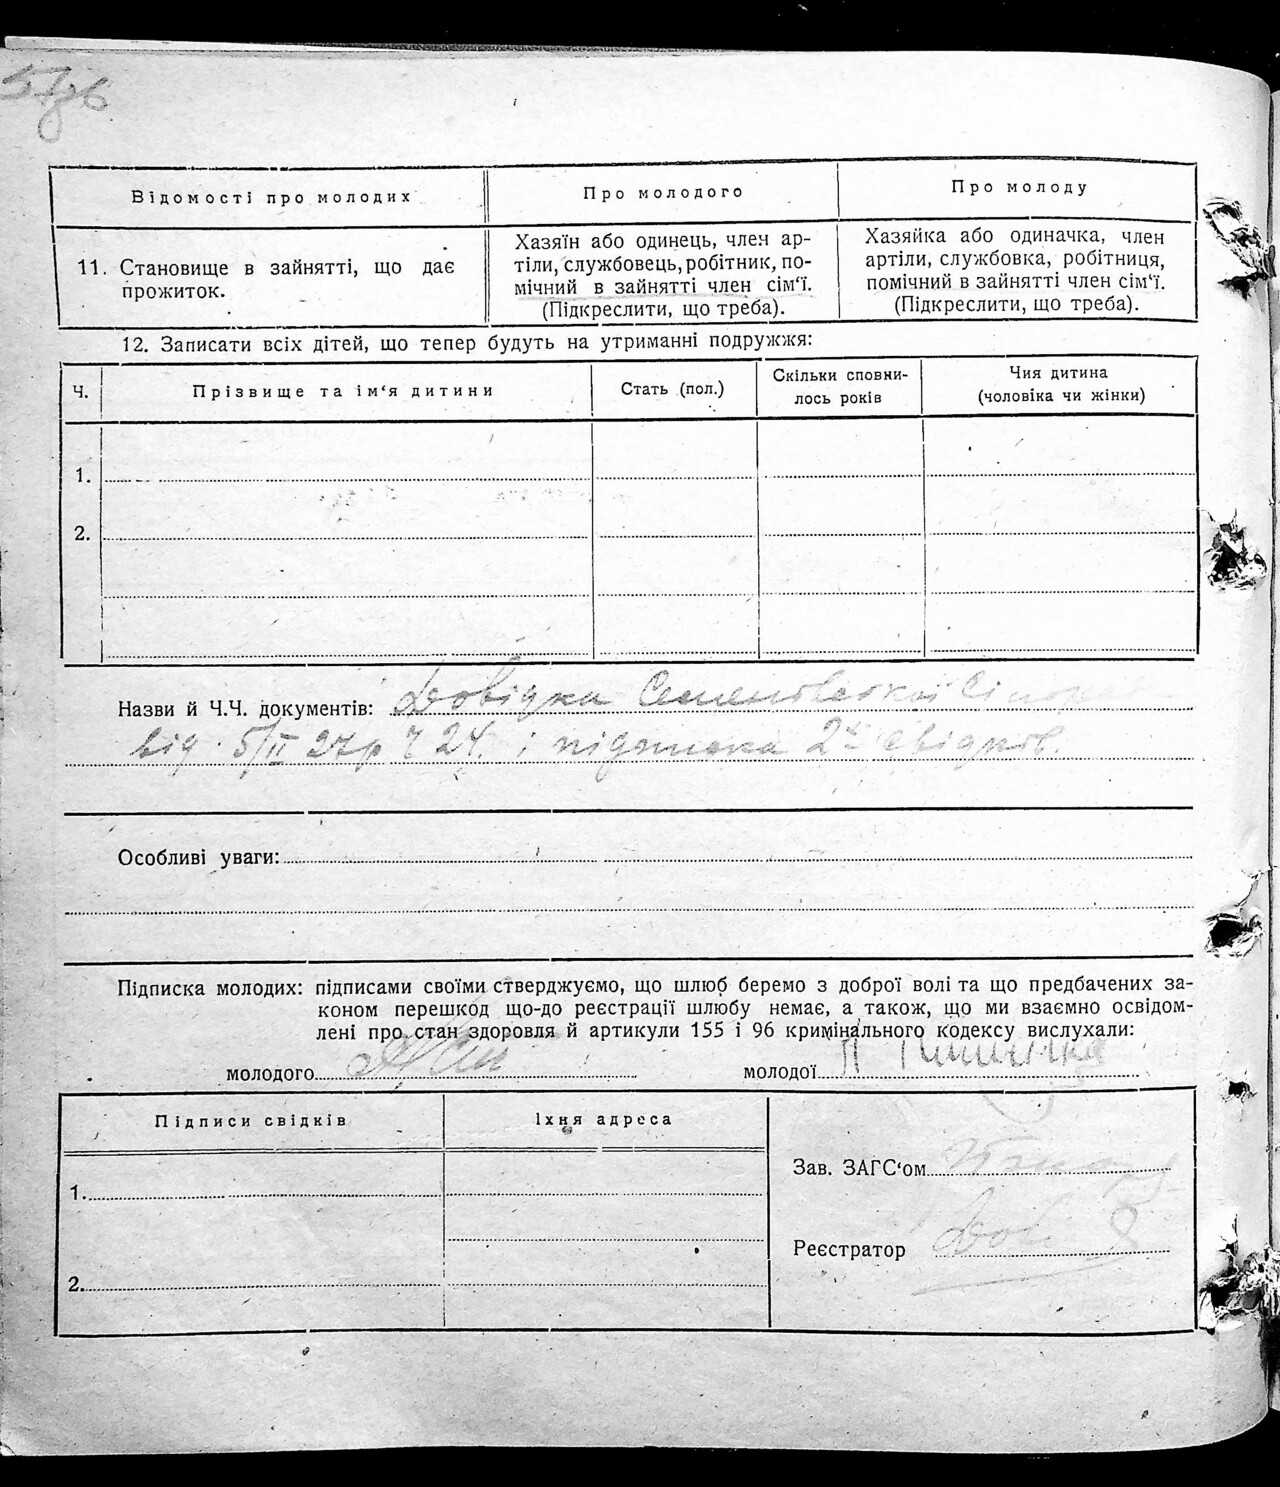 Відомості про молодих
Про молодого
Про молоду
11. Становище в зайнятті, що дає
прожиток.
Хазяїн або одинець, член ар-
тіли, службовець, робітник, по-
мічний в зайнятті член сім'ї.
(Підкреслити, що треба).
Хазяйка або одиначка, член
артіли, службовка, робітниця,
помічний в зайнятті член сім'ї.
(Підкреслити, що треба).
12. Записати всіх дітей, що тепер будуть на утриманні подружжя:
Ч.
Прізвище та ім'я дитини
Стать (пол.)
Скільки сповни-
лось років
Чия дитина
(чоловіка чи жінки)
1.
2.
Назви й Ч.Ч. документів: Довідка Семенівської
від 5/II 27р Ч 24. і підписка 2х свідків.
Особливі уваги:
Підписка молодих: підписами своїми стверджуємо, що шлюб беремо з доброї волі та що предбачених за-
коном перешкод що-до реєстрації шлюбу немає, а також, що ми взаємно освідом-
лені про стан здоровля й артикули 155 і 96 кримінального кодексу вислухали:
молодого
молодої
Підписи свідків
Їхня адреса
1.
2.
Зав. ЗАГС'ом
Реєстратор